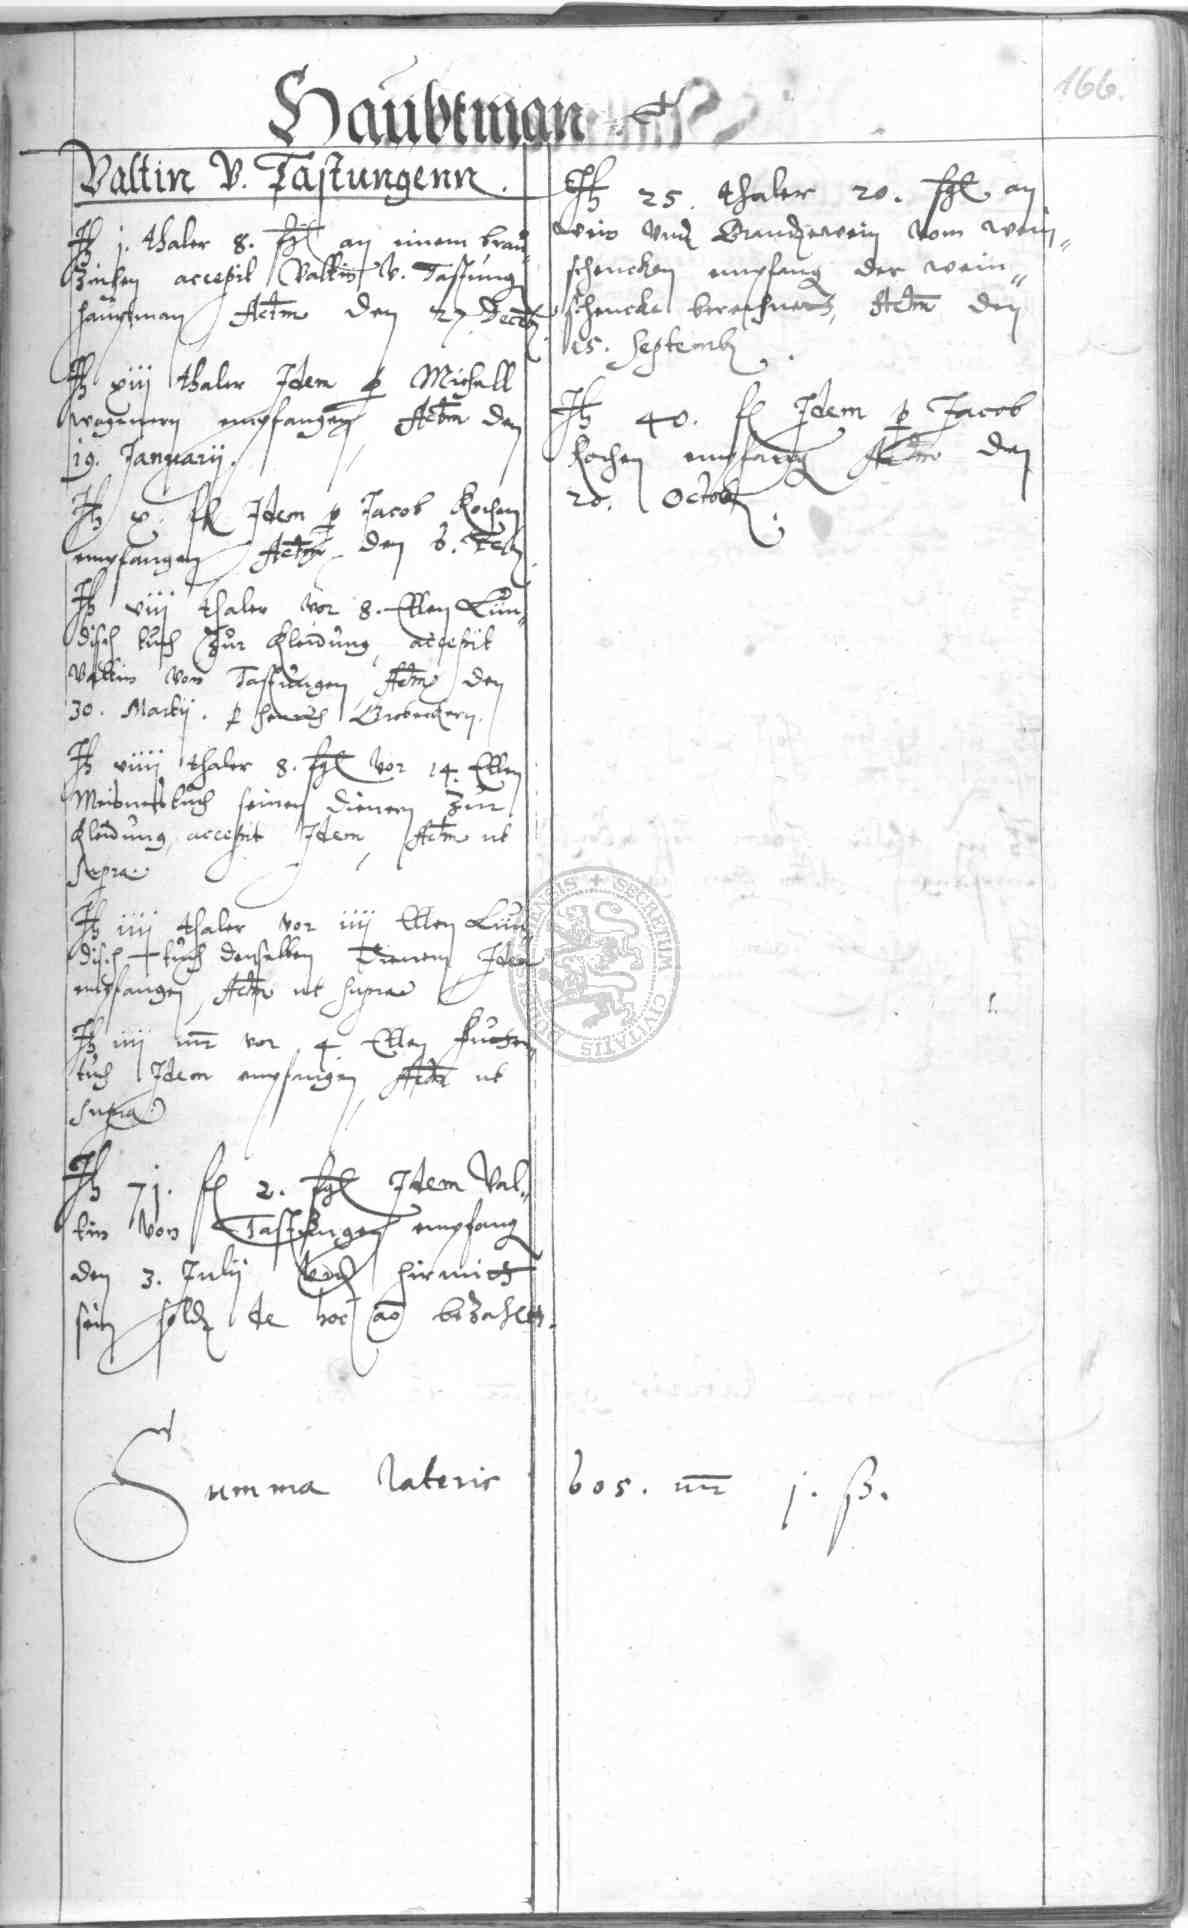 166.
Haubtman
Valtin V. Tastungenn.
It 1. thaler 8. ßgl an einem brau
accepit Valtin V. Tastung
haubtman Actm den 27 Decēb
It xiij thaler Idem p Michell
wagenern empfangen, Actm den
19. Januarij.
It x. fl Idem p Jacob Kochen
empfangen Actm den 6. Feb
It viij thaler vor 8. Ellen Lün„
disch tuch zur Kleidung, accepit
Valtin von Tastungen Actm den
30. Martij. p henrich
It viiij thaler 8. ßgl vor 14. Ellen
Meisnerstuch seinen dienern zur
Kleidung, accepit Idem, Actm ut
supra.
It iiij thaler vor iiij Ellen Lün„
disch tuch denselben dienern Idem
empfangen, Actm ut supra
It iiij mr vor 4 Ellen Futter„
tuch Idem empfangen, Actm ut
supra
It 71. fl 2. ßgl Idem Val„
tin von Tastungen empfang
den 3. Julij Vnd hirmitt
sein sold de hoc ao bezaltt.
It 25. thaler 20. ßgl an
wein Vnd Brandewein vom wein„
schencken empfang der wein„
schencke berechnett, Actm den
15. Septemb
It 40. fl Idem p Jacob
Kochen empfang Actm den
20. Octob
Summa lateris 605. mr j. ß.
SECRETUM CIVITATIS